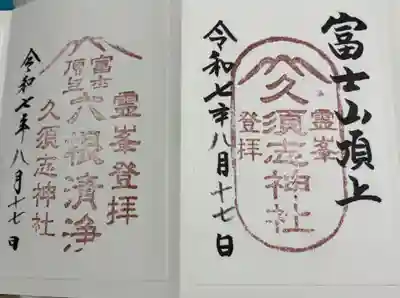 富士山頂上
霊峯登拝
久須志神社
令和七年八月十七日
霊峯登拝
富士
頂上
六根清浄
久須志神社
令和七年八月十七日